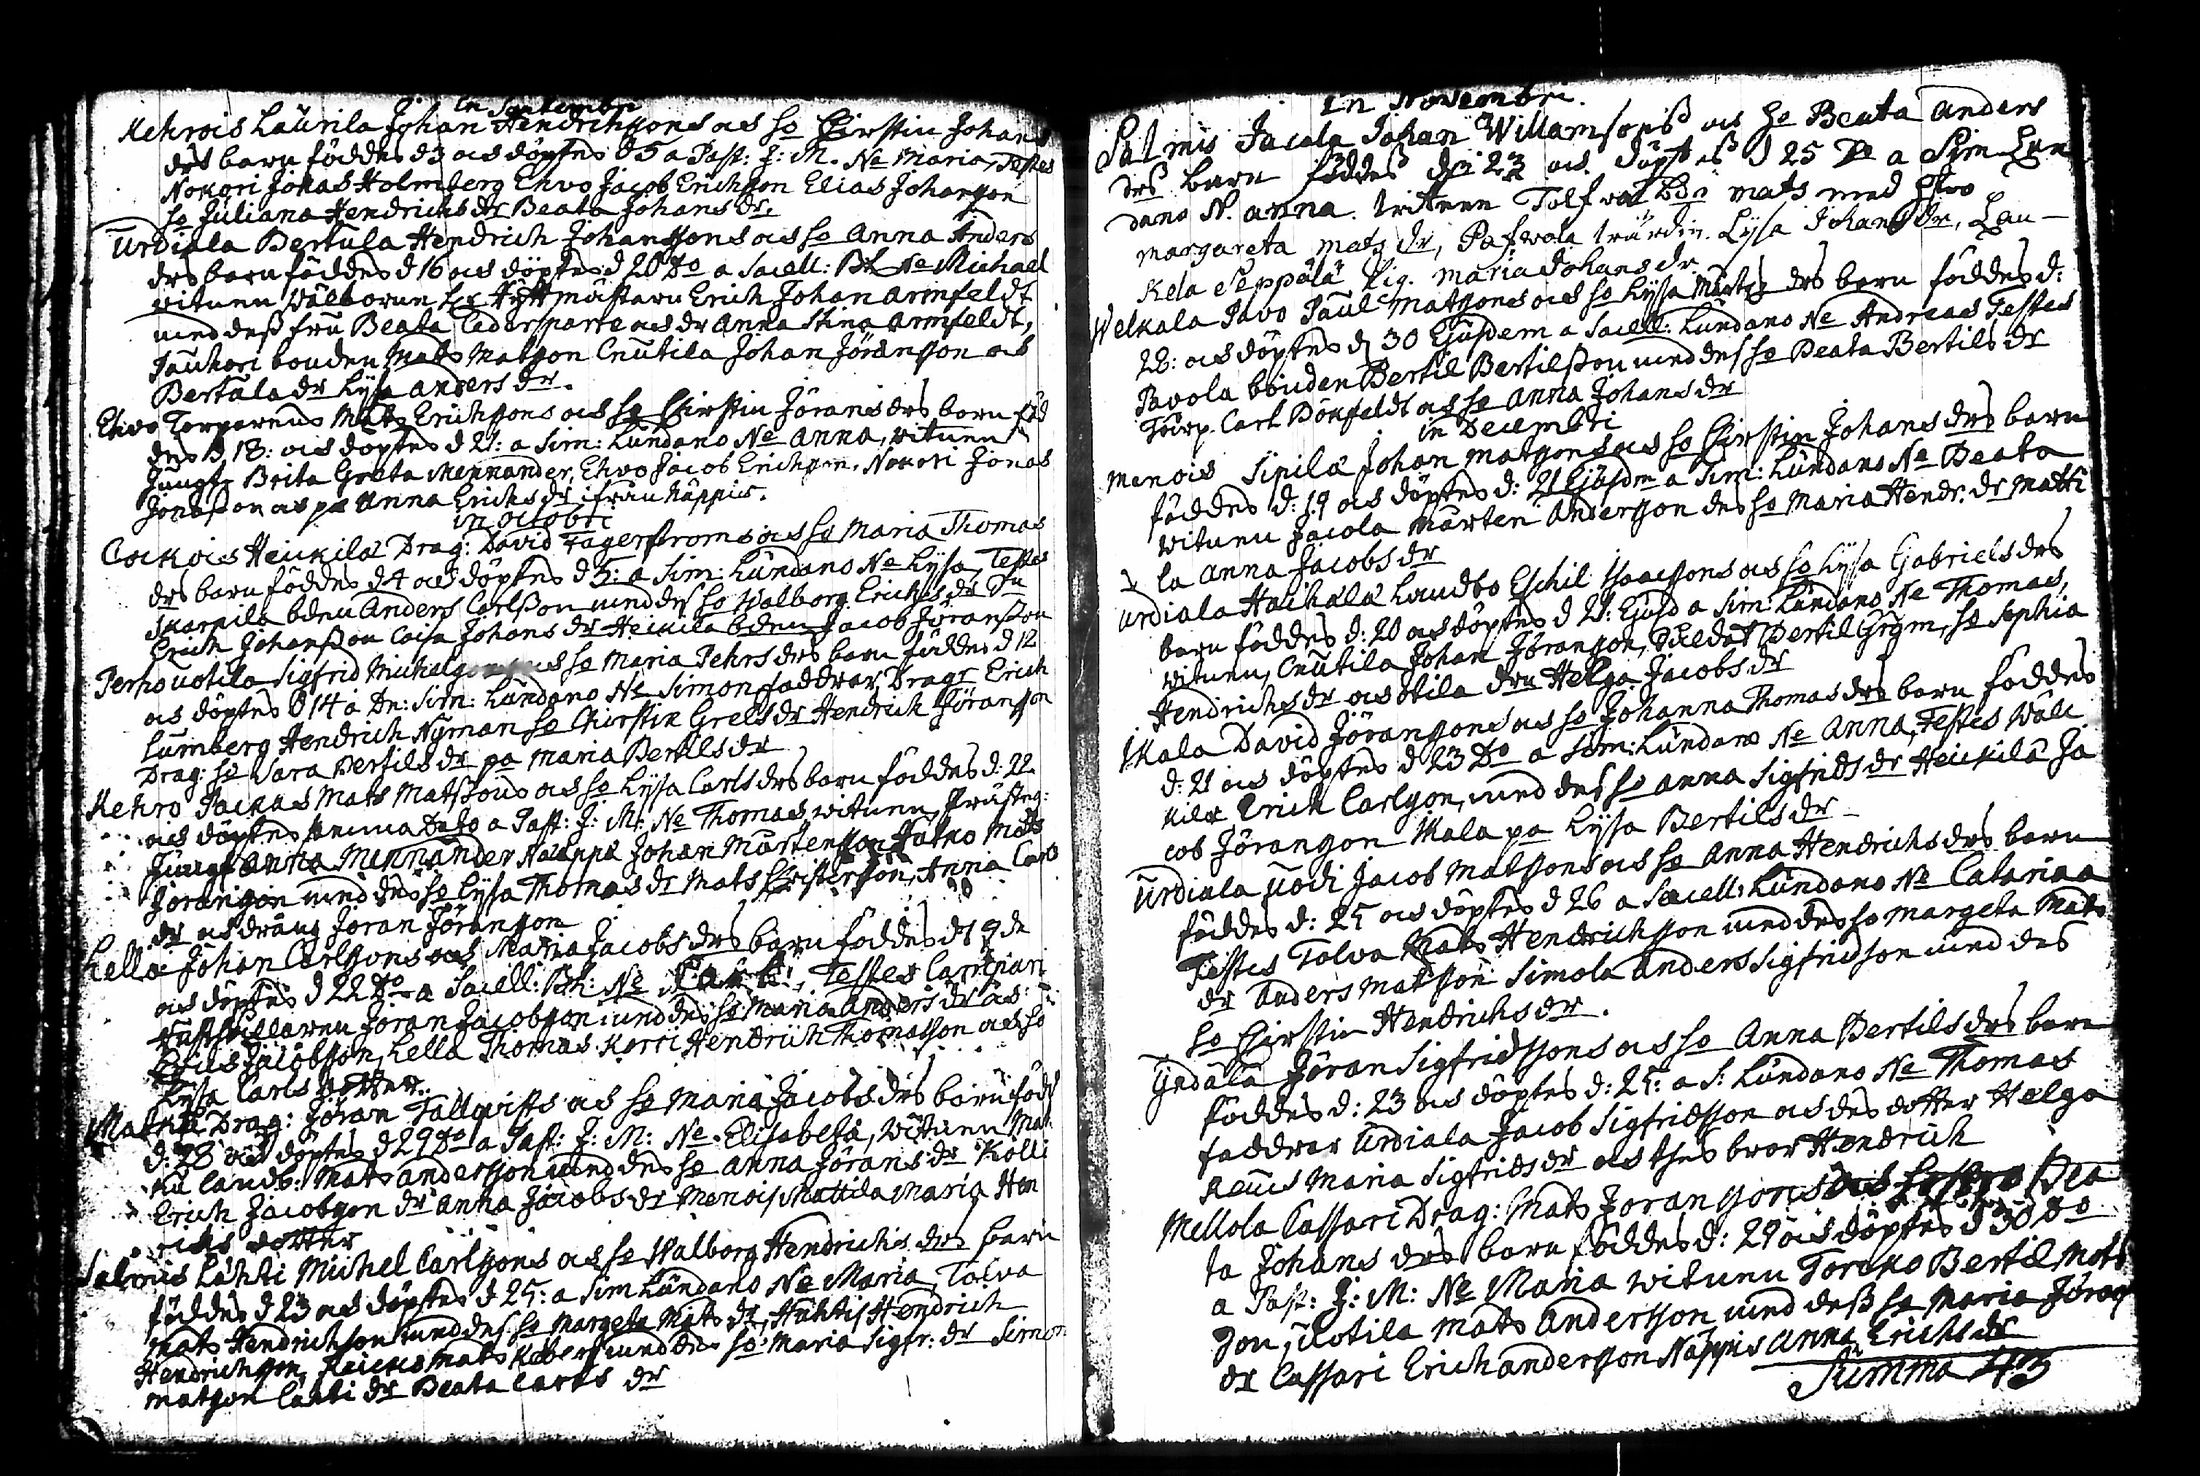 in Septembri
Kehrois Laurila Johan Hendrichssons och ho Chirstin Johans
drs barn föddes d 3 och döptes d 5 a Past: J: M. Ne Maria, Testes
Nohori Johas Holmberg Ehvo Jacob Erichson Elias Johanson
ho Juliana Hendrichs dr Beata Johans dr.
Urdiala Bertula Hendrich Johanssons och ho Anna Anders
drs barn föddes d 16 och döptes d 20 do a Sacell: Bh Ne Michael
witnen Wälborne hr Erich Johan Armfeldt
med dess fru Beata Cedersparre och dr Anna Stina Armfeldt,
bonden Mats Matsson Cnutila Johan Jöransson och
Bertula dr Lysa Anders dr.
Ehvo Torparens Mats Erichssons och ho Chirstin Jörans drs barn föd
des d 18: och döptes d 21: a Sim: Lundano Ne Anna, witnen
Jungfr Brita Greta Mennander, Ehvo Jacob Erichson, Nohori Jonas
Jonasson och pa Anna Erichs dr ifrån Näppis.
in Octobri
Heickilä Drag: David Fagerströms och ho Maria Thomas
drs barn föddes d 4 och döptes d 5: a Sim: Lundano Ne Lysa, Testes
Skarpila bden Anders Carlsson med des ho Walborg Erichs dr
Erich Johansson Caisa Johans dr Heickilä bden Jacob Jöransson
Perho uotila Sigfrid Michelssons och ho Maria Pehrs drs barn föddes d 12
och döptes d 14 a Dn: Sim: Lundano Ne Simon faddrar Dragr Erich
Lumberg Hendrich Nyman ho Chirstin Grels dr Hendrich Jöransson
Drag: ho Sara Bertils dr pa Maria Bertils dr
Kehro Mats Matssons och ho Lysa Carls drs barn föddes d: 22
och döptes a Past: J: M: Ne Thomas, witnen
Jungf Anna Mennander Johan Mårtensson Mats
Jöransson med des ho Lysa Thomas dr Mats Christersson, Anna Carls
dr och dräng Jöran Jöransson
Hella Johan Carlssons och Maria Jacobs drs barn föddes d 19 de
och döptes d 22 do a Sacell: Bh: Ne Testes
Jöran Jacobsson med des ho Maria Anders dr och
Jacobsson, Hella Thomas Hendrich Thomasson och ho
Lysa Carls dotter.
Drag: Jöran Tallqwists och ho Maria Jacobs drs barn födes
d: 28 och döptes d 29 do a Past: J: M: Ne Elisabeta, witnen Mat
Landb: Mats Andersson med des ho Anna Jörans dr Kolli
Erich Jacobsson dr Anna Jacobs dr Menois Mattila Maria Hen
richs dotter
Salmis Lahti Michel Carlssons och ho Walborg Hendrichs drs barn
föddes d 23 och döptes d 25: a Sim Lundano Ne Maria, Tolva
Mats Hendrichson med des ho Margeta Mats dr, Huhtis Hendrich
Hendrichsson, Mats med des ho Maria Sigfr: dr Simon
Matsson Lahti dr Beata Carls dr
in Novembri.
Salmis Jacola Johan Willamsons och ho Beata Anders
drs barn föddes den 23 och döptes d 25 do a Sim Lun
dano N. Anna. witnen Tolfwa bdn Mats med hstro
Margareta Mats dr, Pafwola Lysa Johans dr, Lau-
kela Seppälä Pig. Maria Johans dr
Welkala Pavo Paul Matssons och ho Lysa Mårts drs barn föddes d:
28: och döptes d 30 Ejusdem a Sacell: Lundano Ne Andreas Testes
Pavola bonden Bertil Bertilsson med des ho Beata Bertils dr
Torp. Carl Dönfeldt och ho Anna Johans dr
in Decembri
Menois Sipilä Johan Matssons och ho Chirstin Johans drs barn
föddes d: 19 och döptes d: 21 Ejusdm a Sim: Lundano Ne Beata
witnen Jacola Mårten Andersson des ho Maria Hendr: dr Matti
la Anna Jacobs dr
Urdiala Haihala Landbo Eschil Isacssons och ho Lysa Gabriels drs
barn föddes d: 20 och döptes d 21: Ejusd a Sim: Lundano Ne Thomas,
witnen, Cnutila Johan Jöransson, Soldat Bertil Grym, ho Sophia
Hendrichs dr och otila drn Helga Jacobs dr
Skala David Jöranssons och ho Johanna Thomas drs barn föddes
d: 21 och döptes d 23 do a Sim: Lundano Ne Anna, Testes Wäli
kilä Erich Carlsson, med des ho Anna Sigfrids dr Heickilä Ja
cob Jöransson Skala pa Lysa Bertils dr
Urdiala uodi Jacob Matssons och ho Anna Hendrichs drs barn
föddes d: 25 och döptes d 26 a Sacell: Lundano Ne Catarina
Testes Tolva Mats Hendrichsson med des ho Margeta Mats
dr Anders Matsson Simola Anders Sigfridson med des
ho Chirstin Hendrichs dr.
Jöran Sigfridssons och ho Anna Bertils drs barn
föddes d: 23 och döptes d: 25: a S: Lundano Ne Thomas
faddrar Urdiala Jacob Sigfridsson och des dotter Helga
Maria Sigfrids dr och thes bror Hendrich
Mellola Cassari Drag: Mats Joranssons Bea
ta Johans drs barn föddes d: 29 och döptes d 30 do
a Past: J: M: Ne Maria witnen Torcko Bertil Mats
son, uotila Mats Andersson med dess ho Maria Jöran
dr Cassari Erich Andersson Näppis Anna Erichs dr
Summa 43